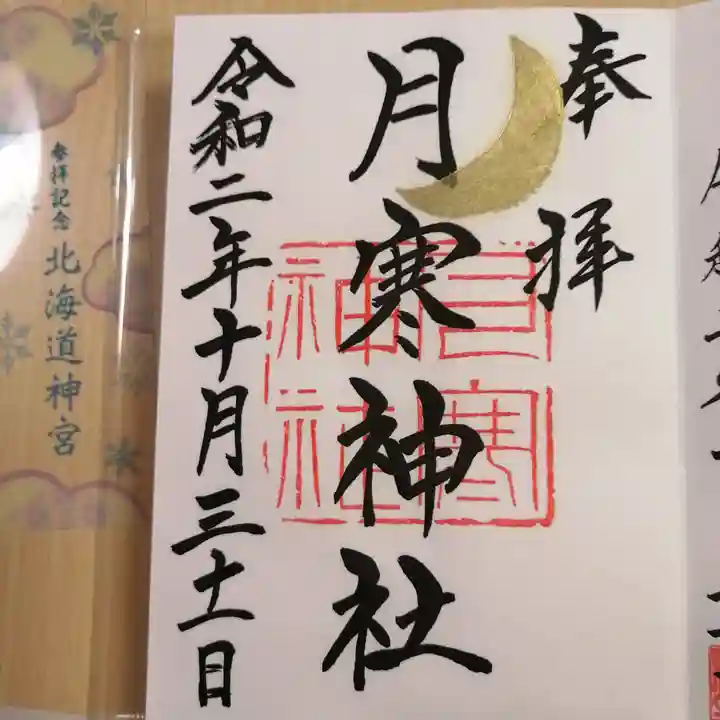 奉拝
月寒神社
月寒神社
令和二年十月三十一日
参拝記念
北海道神宮